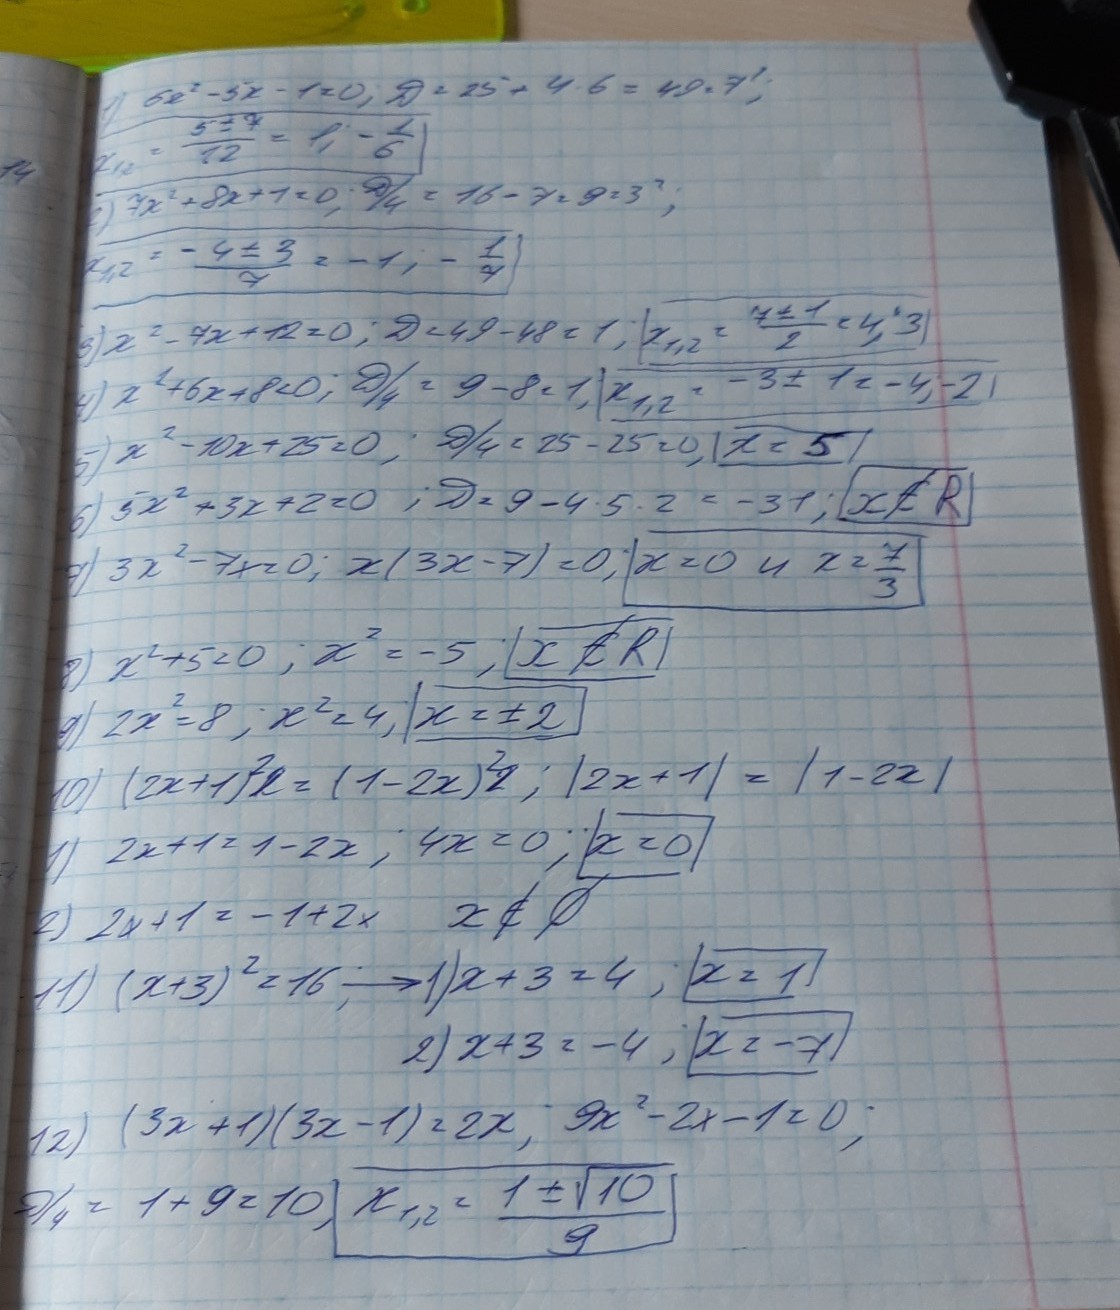 14
1) 6x² - 5x - 1 = 0; D = 25 + 4·6 = 49 = 7²;
x₁,₂ = (5 ± 7)/12 = 1; -1/6
2) 7x² + 8x + 1 = 0; D/4 = 16 - 7 = 9 = 3²;
x₁,₂ = (-4 ± 3)/7 = -1; -1/7
3) x² - 7x + 12 = 0; D = 49 - 48 = 1; x₁,₂ = (7 ± 1)/2 = 4; 3
4) x² + 6x + 8 = 0; D/4 = 9 - 8 = 1, x₁,₂ = -3 ± 1 = -4, -2
5) x² - 10x + 25 = 0; D/4 = 25 - 25 = 0, x = 5
6) 5x² + 3x + 2 = 0; D = 9 - 4·5·2 = -31; x ∉ R
7) 3x² - 7x = 0; x(3x - 7) = 0; x = 0 и x = 7/3
8) x² + 5 = 0; x² = -5; x ∉ R
9) 2x² = 8; x² = 4, x = ±2
10) (2x + 1)² = (1 - 2x)²; |2x + 1| = |1 - 2x|
1) 2x + 1 = 1 - 2x; 4x = 0; x = 0
2) 2x + 1 = -1 + 2x x ∉ ∅
11) (x + 3)² = 16; → 1) x + 3 = 4; x = 1
2) x + 3 = -4; x = -7
12) (3x + 1)(3x - 1) = 2x; 9x² - 2x - 1 = 0;
D/4 = 1 + 9 = 10, x₁,₂ = (1 ± √10)/9